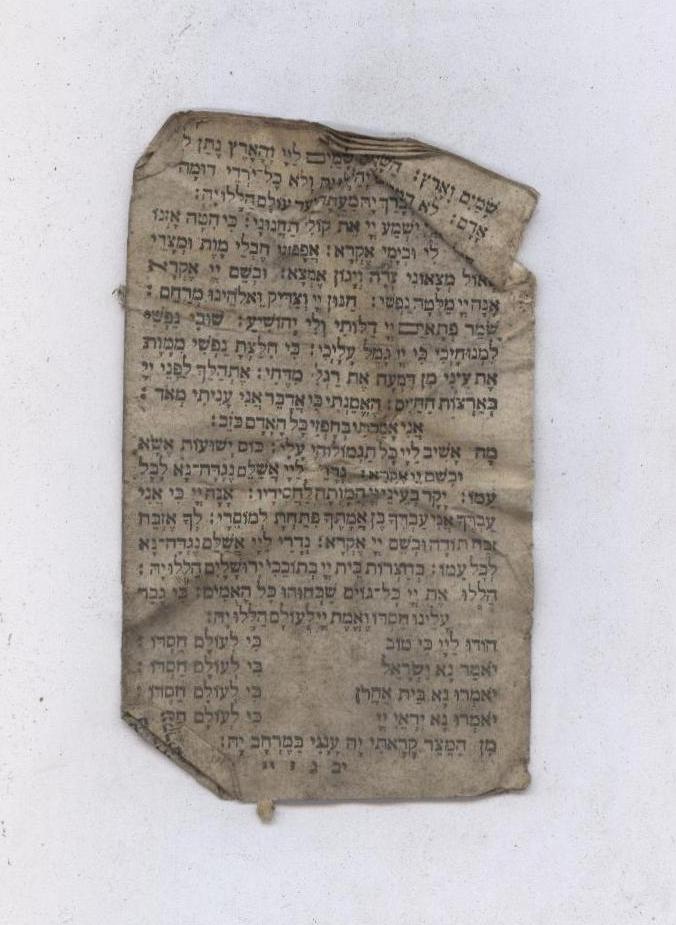 שָׁמַיִם וָאָרֶץ: הַשָּׁמַיִם שָׁמַיִם לַיְיָ וְהָאָרֶץ נָתַן ל
אָדָם: לֹא יָהּ וְלֹא כָּל־יֹרְדֵי דוּמָה
נְבָרֵךְ יָהּ מֵעַתָּה וְעַד עוֹלָם הַלְלוּיָהּ:
יִשְׁמַע יְיָ אֶת קוֹלִי תַּחֲנוּנָי: כִּי הִטָּה אָזְנוֹ
לִי וּבְיָמַי אֶקְרָא: אֲפָפוּנִי חֶבְלֵי מָוֶת וּמְצָרֵי
שְׁאוֹל מְצָאוּנִי צָרָה וְיָגוֹן אֶמְצָא: וּבְשֵׁם יְיָ אֶקְרָא
אָנָּה יְיָ מַלְּטָה נַפְשִׁי: חַנּוּן יְיָ וְצַדִּיק וֵאלֹהֵינוּ מְרַחֵם:
שֹׁמֵר פְּתָאִים יְיָ דַּלּוֹתִי וְלִי יְהוֹשִׁיעַ: שׁוּבִי נַפְשִׁי
לִמְנוּחָיְכִי כִּי יְיָ גָּמַל עָלָיְכִי: כִּי חִלַּצְתָּ נַפְשִׁי מִמָּוֶת
אֶת עֵינִי מִן דִּמְעָה אֶת רַגְלִי מִדֶּחִי: אֶתְהַלֵּךְ לִפְנֵי יְיָ
בְּאַרְצוֹת הַחַיִּים: הֶאֱמַנְתִּי כִּי אֲדַבֵּר אֲנִי עָנִיתִי מְאֹד:
אֲנִי אָמַרְתִּי בְחָפְזִי כָּל הָאָדָם כֹּזֵב:
מָה אָשִׁיב לַיְיָ כָּל תַּגְמוּלוֹהִי עָלָי: כּוֹס יְשׁוּעוֹת אֶשָּׂא
וּבְשֵׁם יְיָ אֶקְרָא: נְדָרַי לַיְיָ אֲשַׁלֵּם נֶגְדָה־נָּא לְכָל
עַמּוֹ: יָקָר בְּעֵינֵי יְיָ הַמָּוְתָה לַחֲסִידָיו: אָנָּה יְיָ כִּי אֲנִי
עַבְדֶּךָ אֲנִי עַבְדְּךָ בֶּן אֲמָתֶךָ פִּתַּחְתָּ לְמוֹסֵרָי: לְךָ אֶזְבַּח
זֶבַח תּוֹדָה וּבְשֵׁם יְיָ אֶקְרָא: נְדָרַי לַיְיָ אֲשַׁלֵּם נֶגְדָה־נָּא
לְכָל עַמּוֹ: בְּחַצְרוֹת בֵּית יְיָ בְּתוֹכֵכִי יְרוּשָׁלַיִם הַלְלוּיָהּ:
הַלְלוּ אֶת יְיָ כָּל־גּוֹיִם שַׁבְּחוּהוּ כָּל הָאֻמִּים: כִּי גָבַר
עָלֵינוּ חַסְדּוֹ וֶאֱמֶת יְיָ לְעוֹלָם הַלְלוּיָהּ:
הוֹדוּ לַיְיָ כִּי טוֹב כִּי לְעוֹלָם חַסְדּוֹ:
יֹאמַר נָא יִשְׂרָאֵל כִּי לְעוֹלָם חַסְדּוֹ:
יֹאמְרוּ נָא בֵּית אַהֲרֹן כִּי לְעוֹלָם חַסְדּוֹ:
יֹאמְרוּ נָא יִרְאֵי יְיָ כִּי לְעוֹלָם
מִן הַמֵּצַר קָרָאתִי יָהּ עָנָנִי בַמֶּרְחָב יָהּ: